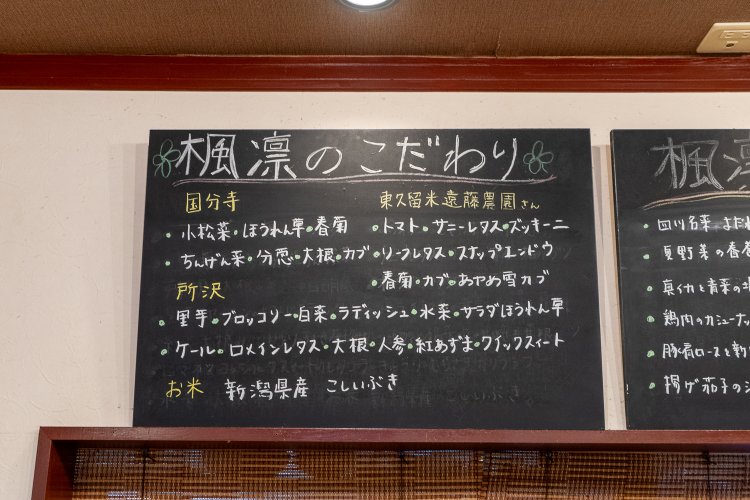 楓凛のこだわり
国分寺
・小松菜・ほうれん草・春菊
・ちんげん菜・分葱・大根・カブ
東久留米遠藤農園さん
・トマト・サニーレタス・ズッキーニ
・リーフレタス・スナップエンドウ
・春菊・カブ・あやめ雪カブ
所沢
・里芋・ブロッコリー・白菜・ラディッシュ・水菜・サラダほうれん草
・ケール・ロメインレタス・大根・人参・紅あずま・クイックスィート
お米 新潟県産 こしいぶき
楓凛
・四川名菜 まだ
・夏野菜の春巻
・真イカと青菜の
・鶏肉のカシューナッ
・豚肩ロースと新
・揚げ茄子の